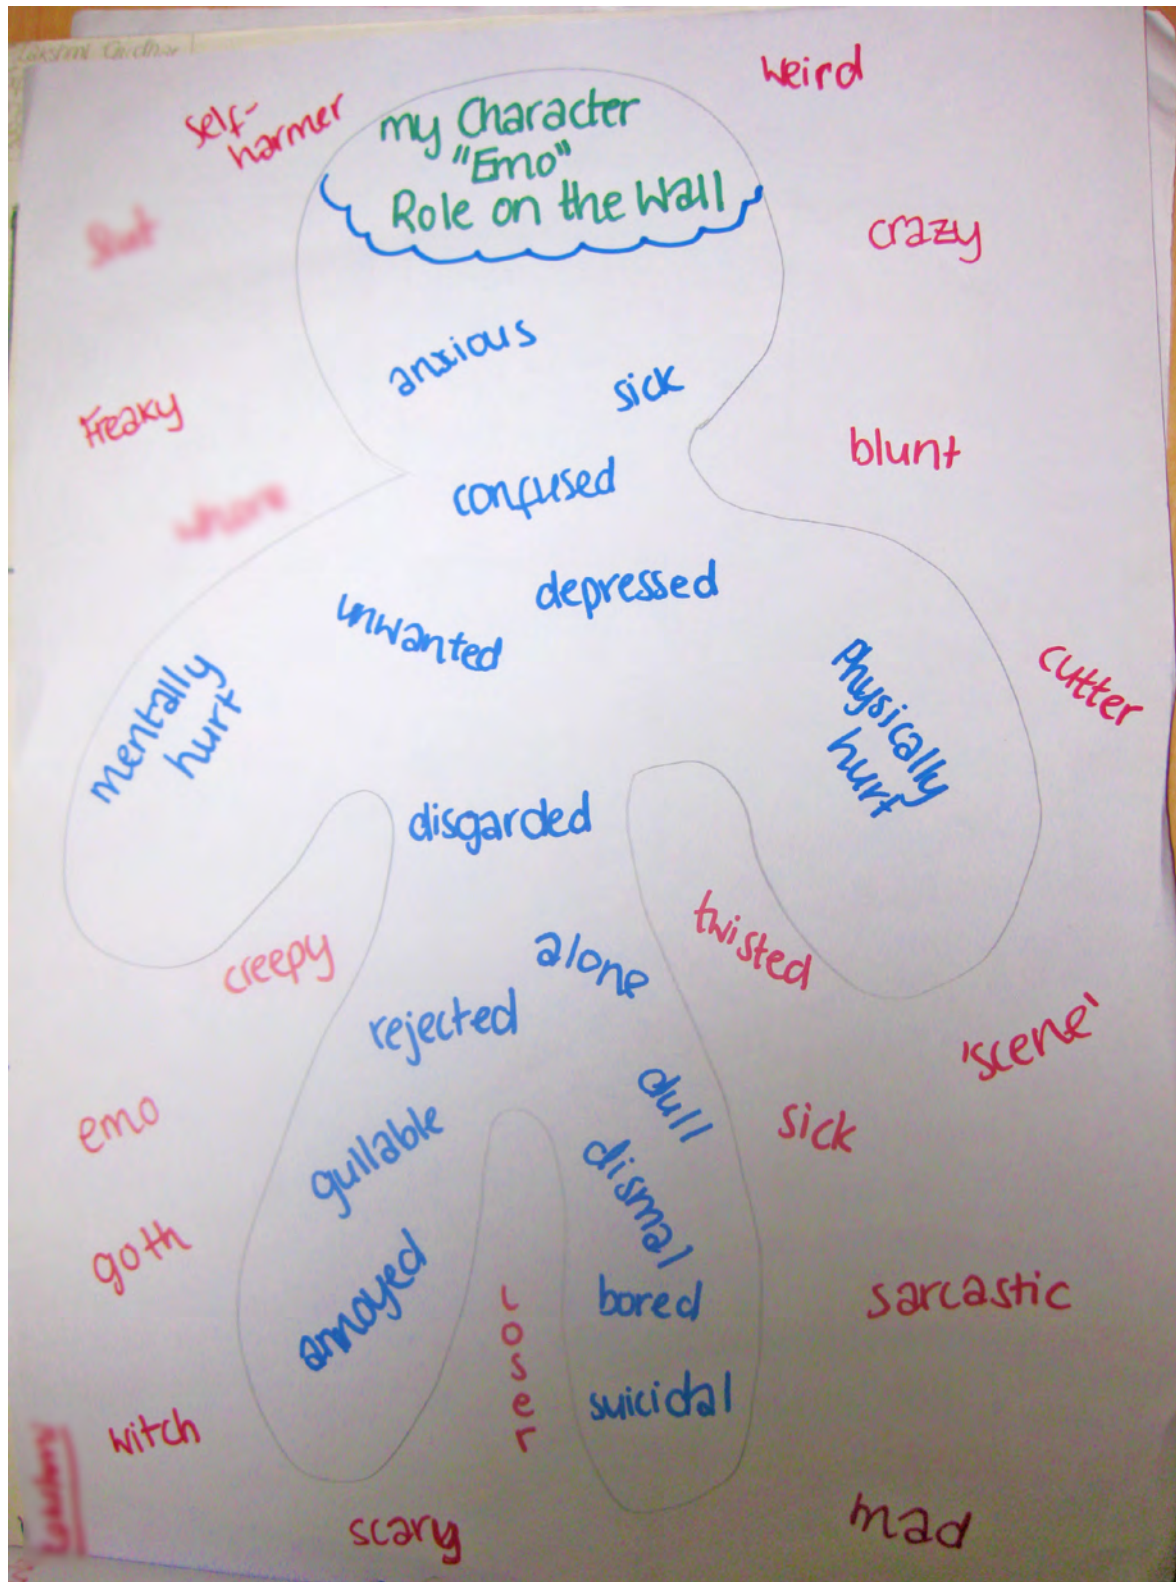 self-
harmer
weird
my Character
"Emo"
Role on the Wall
crazy
anxious
sick
Freaky
blunt
confused
depressed
unwanted
mentally
hurt
Physically
hurt
cutter
disgarded
twisted
creepy
alone
rejected
'scene'
dull
emo
sick
gullable
dismal
goth
annoyed
bored
sarcastic
loser
suicidal
witch
scary
mad